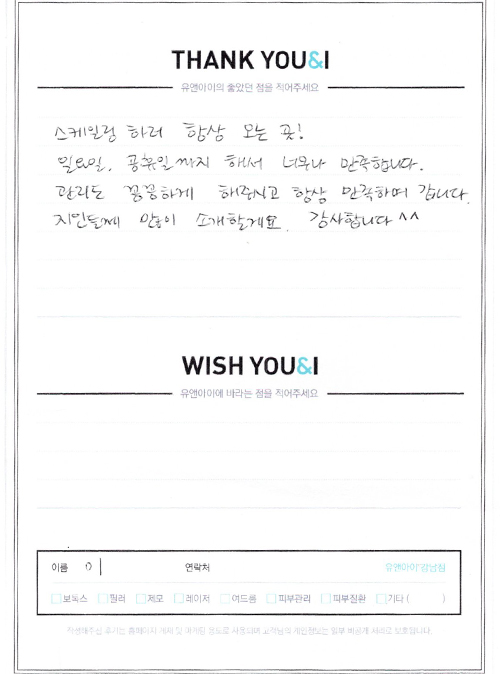 THANK YOU&I
유앤아이의 좋았던 점을 적어주세요
스케일링 하러 항상 오는 곳!
일요일, 공휴일까지 해서 너무나 만족합니다.
관리도 꼼꼼하게 해주시고 항상 만족하며 갑니다.
지인들께 많이 소개할게요. 감사합니다 ^^
WISH YOU&I
유앤아이에 바라는 점을 적어주세요
이름 이 연락처 유앤아이 강남점
보톡스 필러 제모 레이저 여드름 피부관리 피부질환 기타 ( )
작성해주신 후기는 홈페이지 게재 및 마케팅 용도로 사용되며 고객님의 개인정보는 일부 비공개 처리로 보호됩니다.